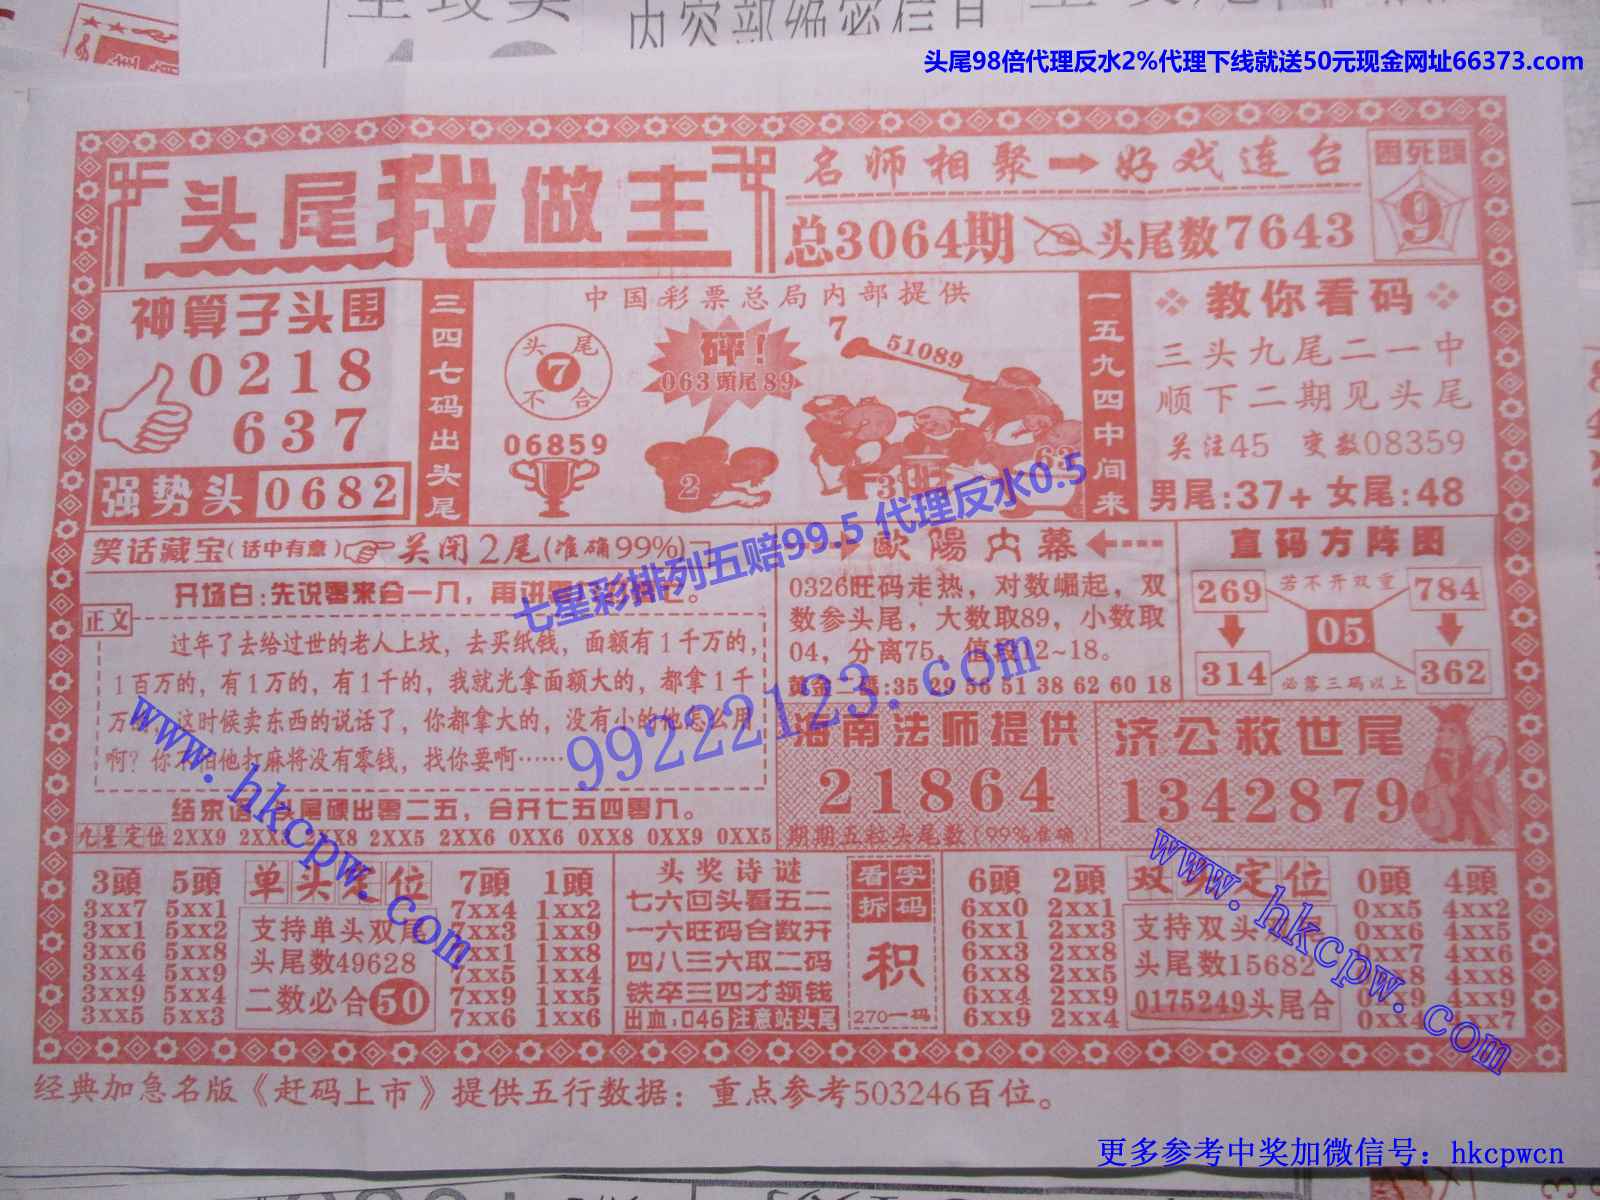 头尾98倍代理反水2%代理下线就送50元现金网址66373.com
头尾我做主
名师相聚→好戏连台
总3064期 头尾数7643
困死頭
9
神算子头围
0218
637
强势头 0682
三四七码出头尾
中国彩票总局内部提供
头尾
7
不合
06859
砰!
063頭尾89
2
7
51089
63
一五九四中间来
教你看码
三头九尾二一中
顺下二期见头尾
关注45 变数08359
男尾:37+女尾:48
七星彩排列五赔99.5 代理反水0.5
笑话藏宝(话中有意) 关闭2尾(准确99%)
开场白:先说零来合一八,再讲
正文
过年了去给过世的老人上坟,去买纸钱,面额有1千万的,
1百万的,有1万的,有1千的,我就光拿面额大的,都拿1千
万 这时候卖东西的说话了,你都拿大的,没有小的他怎么用
啊?你不怕他打麻将没有零钱,找你要啊……
结束语 头尾硬出零二五,合开七五四零九。
九星定位 2XX9 2XX3 2XX8 2XX5 2XX6 0XX6 0XX8 0XX9 0XX5
歐陽内幕
0326旺码走热,对数崛起,双
数参头尾,大数取89,小数取
04,分离75,值段12~18。
黄金二 :35 29 56 51 38 62 60 18
直码方阵图
269 若不开双重 784
05
314 必落三码以上 362
99222123.com
www.hkcpw.com
海南法师提供
21864
期期五粒头尾数(99%准确)
济公救世尾
1342879
www.hkcpw.com
3頭 5頭
3xx7 5xx1
3xx1 5xx2
3xx6 5xx8
3xx4 5xx9
3xx9 5xx4
3xx5 5xx3
单头定位
支持单头双尾
头尾数49628
二数必合50
7頭 1頭
7xx4 1xx2
7xx3 1xx9
xx1 1xx8
7xx5 1xx4
7xx9 1xx5
7xx6 1xx6
头奖诗谜
七六回头看五二
一六旺码合数开
四八三六取二码
铁卒三四才领钱
出血:046 注意站头尾
看字拆码
积
270一码
6頭 2頭
6xx0 2xx1
6xx1 2xx3
6xx3 2xx8
6xx8 2xx5
6xx4 2xx9
6xx9 2xx4
双头定位
支持双头双尾
头尾数15682
0175249头尾合
0頭 4頭
0xx5 4xx2
0xx6 4xx5
0xx7 4xx6
xx8 4xx8
0xx9 4xx9
0xx4 4xx7
经典加急名版《赶码上市》提供五行数据:重点参考503246百位。
更多参考中奖加微信号:hkcpwcn